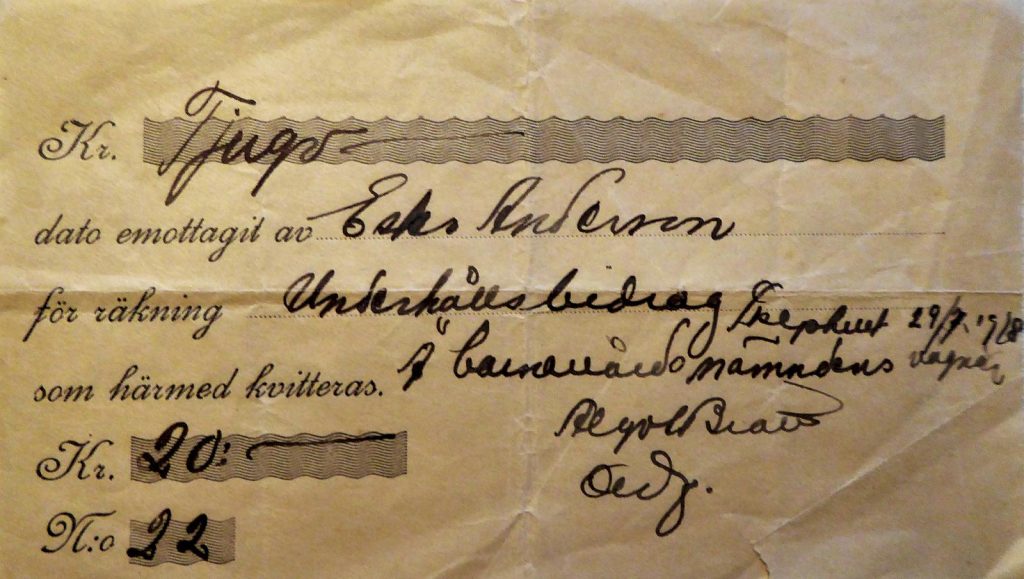 Kr. Tjugo
dato emottagit av Esko Anderson
för räkning Underhållsbidrag 29/7
som härmed kvitteras. Å barnavårdsnämndens vägnar
Kr. 20:
Ordf.
N:o 22